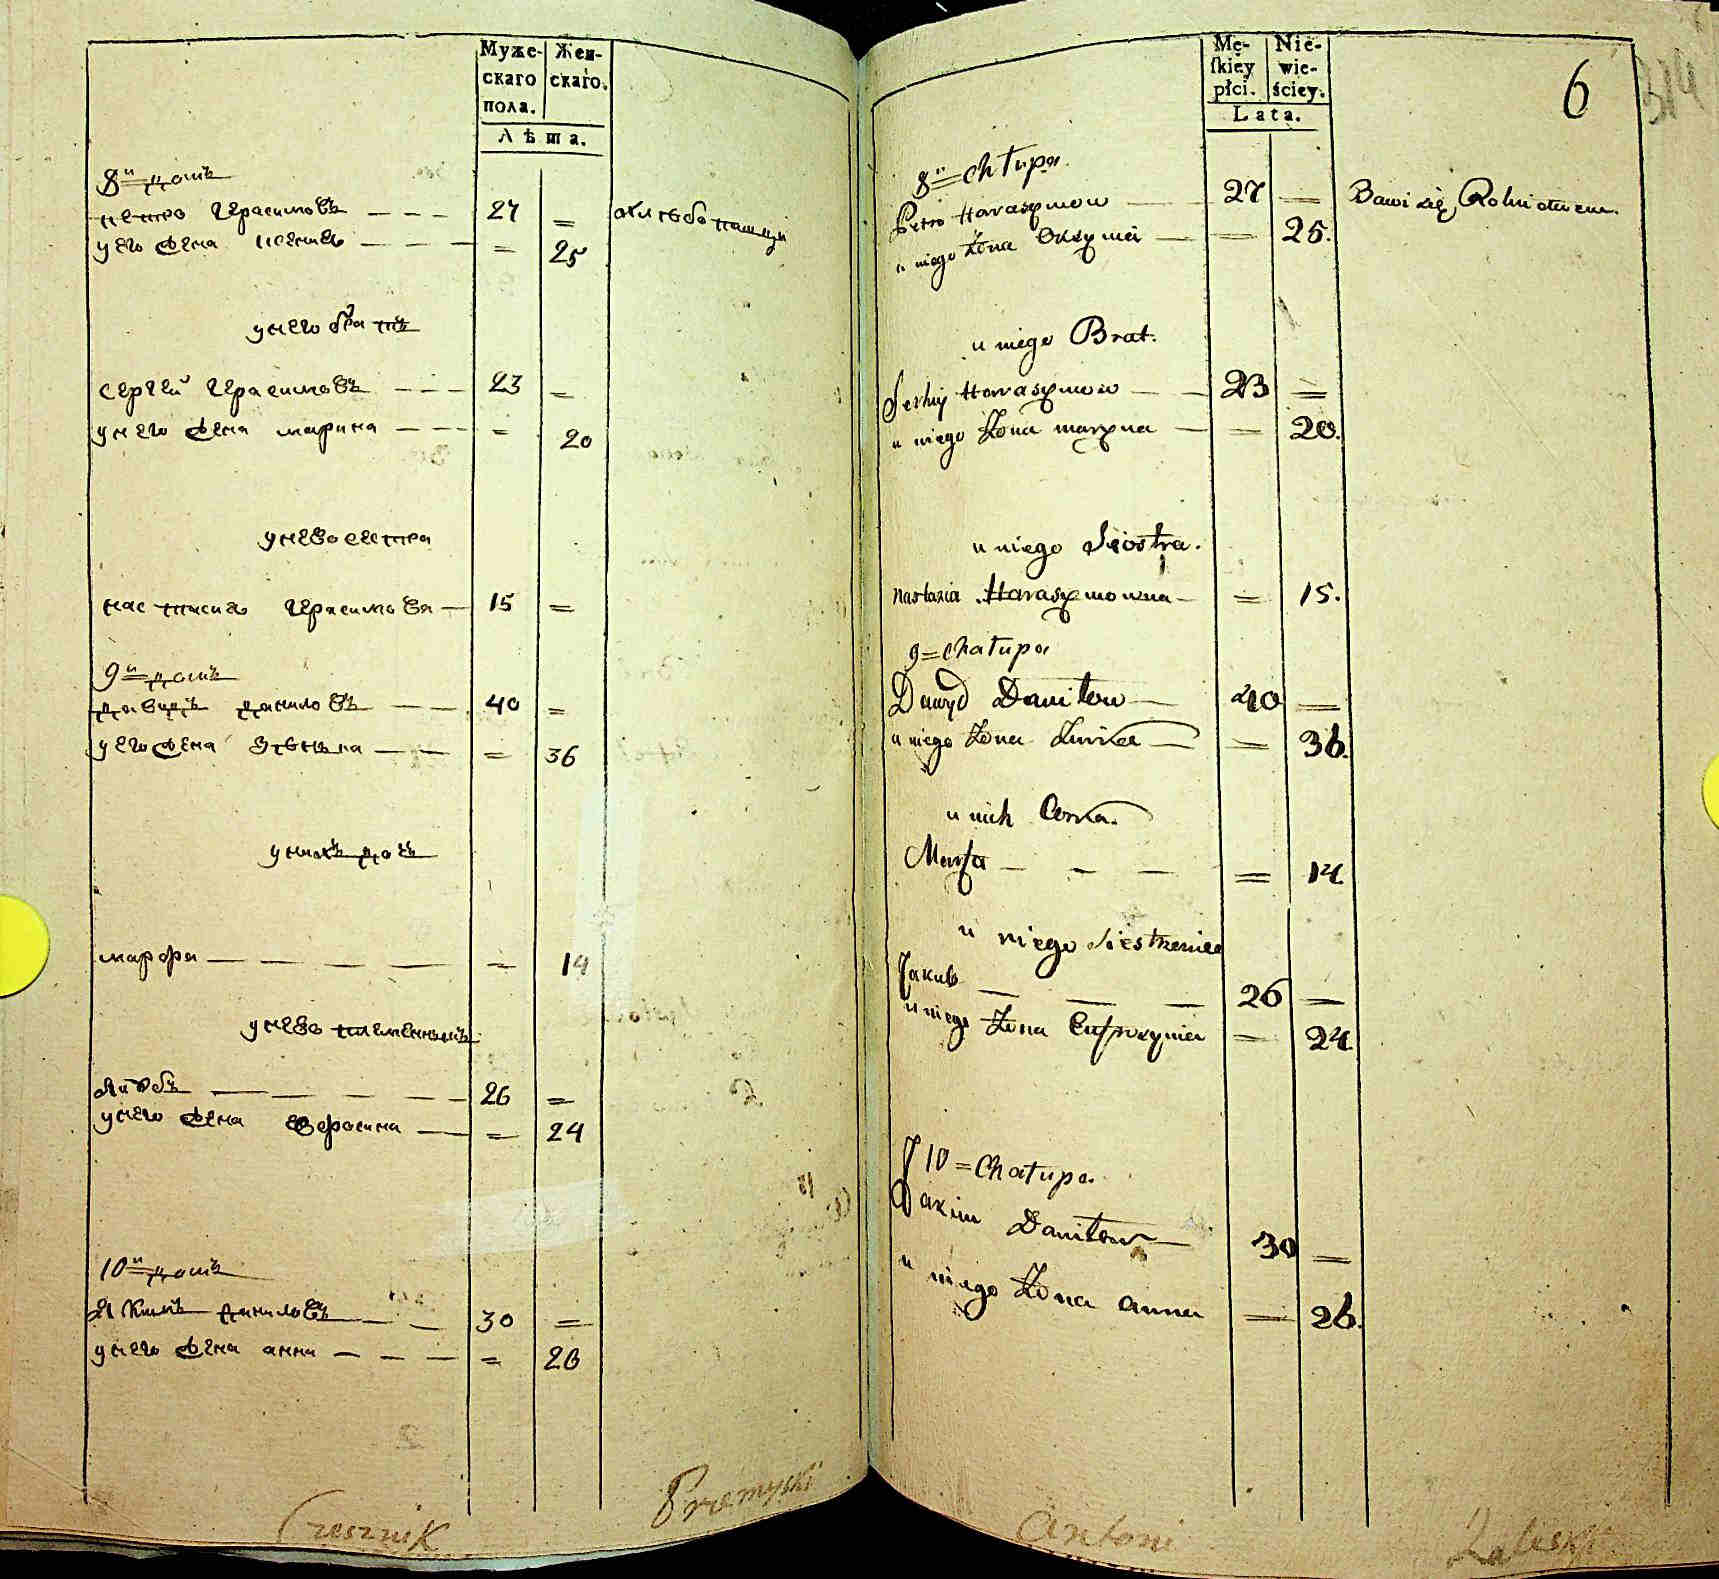 Муже-
скаго
пола.
Жен-
скаго.
Лѣта.
8й домъ
петро Герасимовъ — — — 27 =
у его жена — — — = 25
у него братъ
сергей Герасимовъ — — — 23 =
у него жена марина — — — = 20
у нево сестра
настасиа Герасимова — 15 =
9й домъ
давидъ даниловъ — — 40 =
у его жена — — = 36
у нихъ дочь
марфа — — — — = 14
у нево племенникъ
Якубъ — — — — — 26 =
у него жена евфросина — = 24
10й домъ
Якимъ даниловъ — — 30 =
у него жена анна — — — = 26
Czesznik
Przemyski
Mę-
skiey
płci.
Nie-
wie-
ściey.
Lata.
6
8 = Chałupa.
Petro Harasymow — — 27 = Bawi się Rolnictwem.
u niego Żona — = 25.
u niego Brat.
Serhiy Harasymow — — 23 =
u niego Żona maryna — = 20.
u niego Siostra.
nastazia Harasymowna — = 15.
9 = Chałupa
Dawyd Daniłow — 40 =
u niego Żona — = 36.
u nich Corka.
Marfa — — — = 14
u niego Siestrzeniec
Jakub — — — 26 =
u niego Żona Eufrozynia = 24
10 = Chałupa.
Jakim Daniłow — 30 =
u niego Żona anna = 26.
Antoni
Zaleski